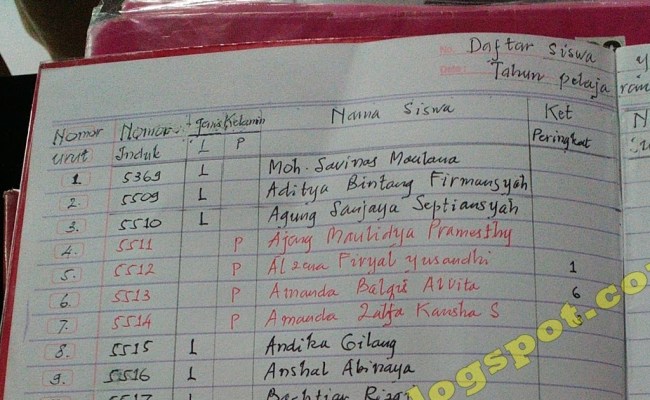 No. Daftar Siswa
Date: Tahun pelaja
Nomor Urut Nomor Induk Jenis Kelamin L P Nama Siswa Ket Peringkat
1. 5369 L Moh. Savinas Maulana
2. 5509 L Aditya Bintang Firmansyah
3. 5510 L Agung Sanjaya Septiansyah
4. 5511 P Ajeng Maulidya Pramesthy
5. 5512 P Alzena Firyal Yusandhi 1
6. 5513 P Amanda Balqis Alvita 6
7. 5514 P Amanda Zalfa Kansha S
8. 5515 L Andika Gilang
9. 5516 L Anshal Abinaya
5517 L Bachtiar
logspot.co